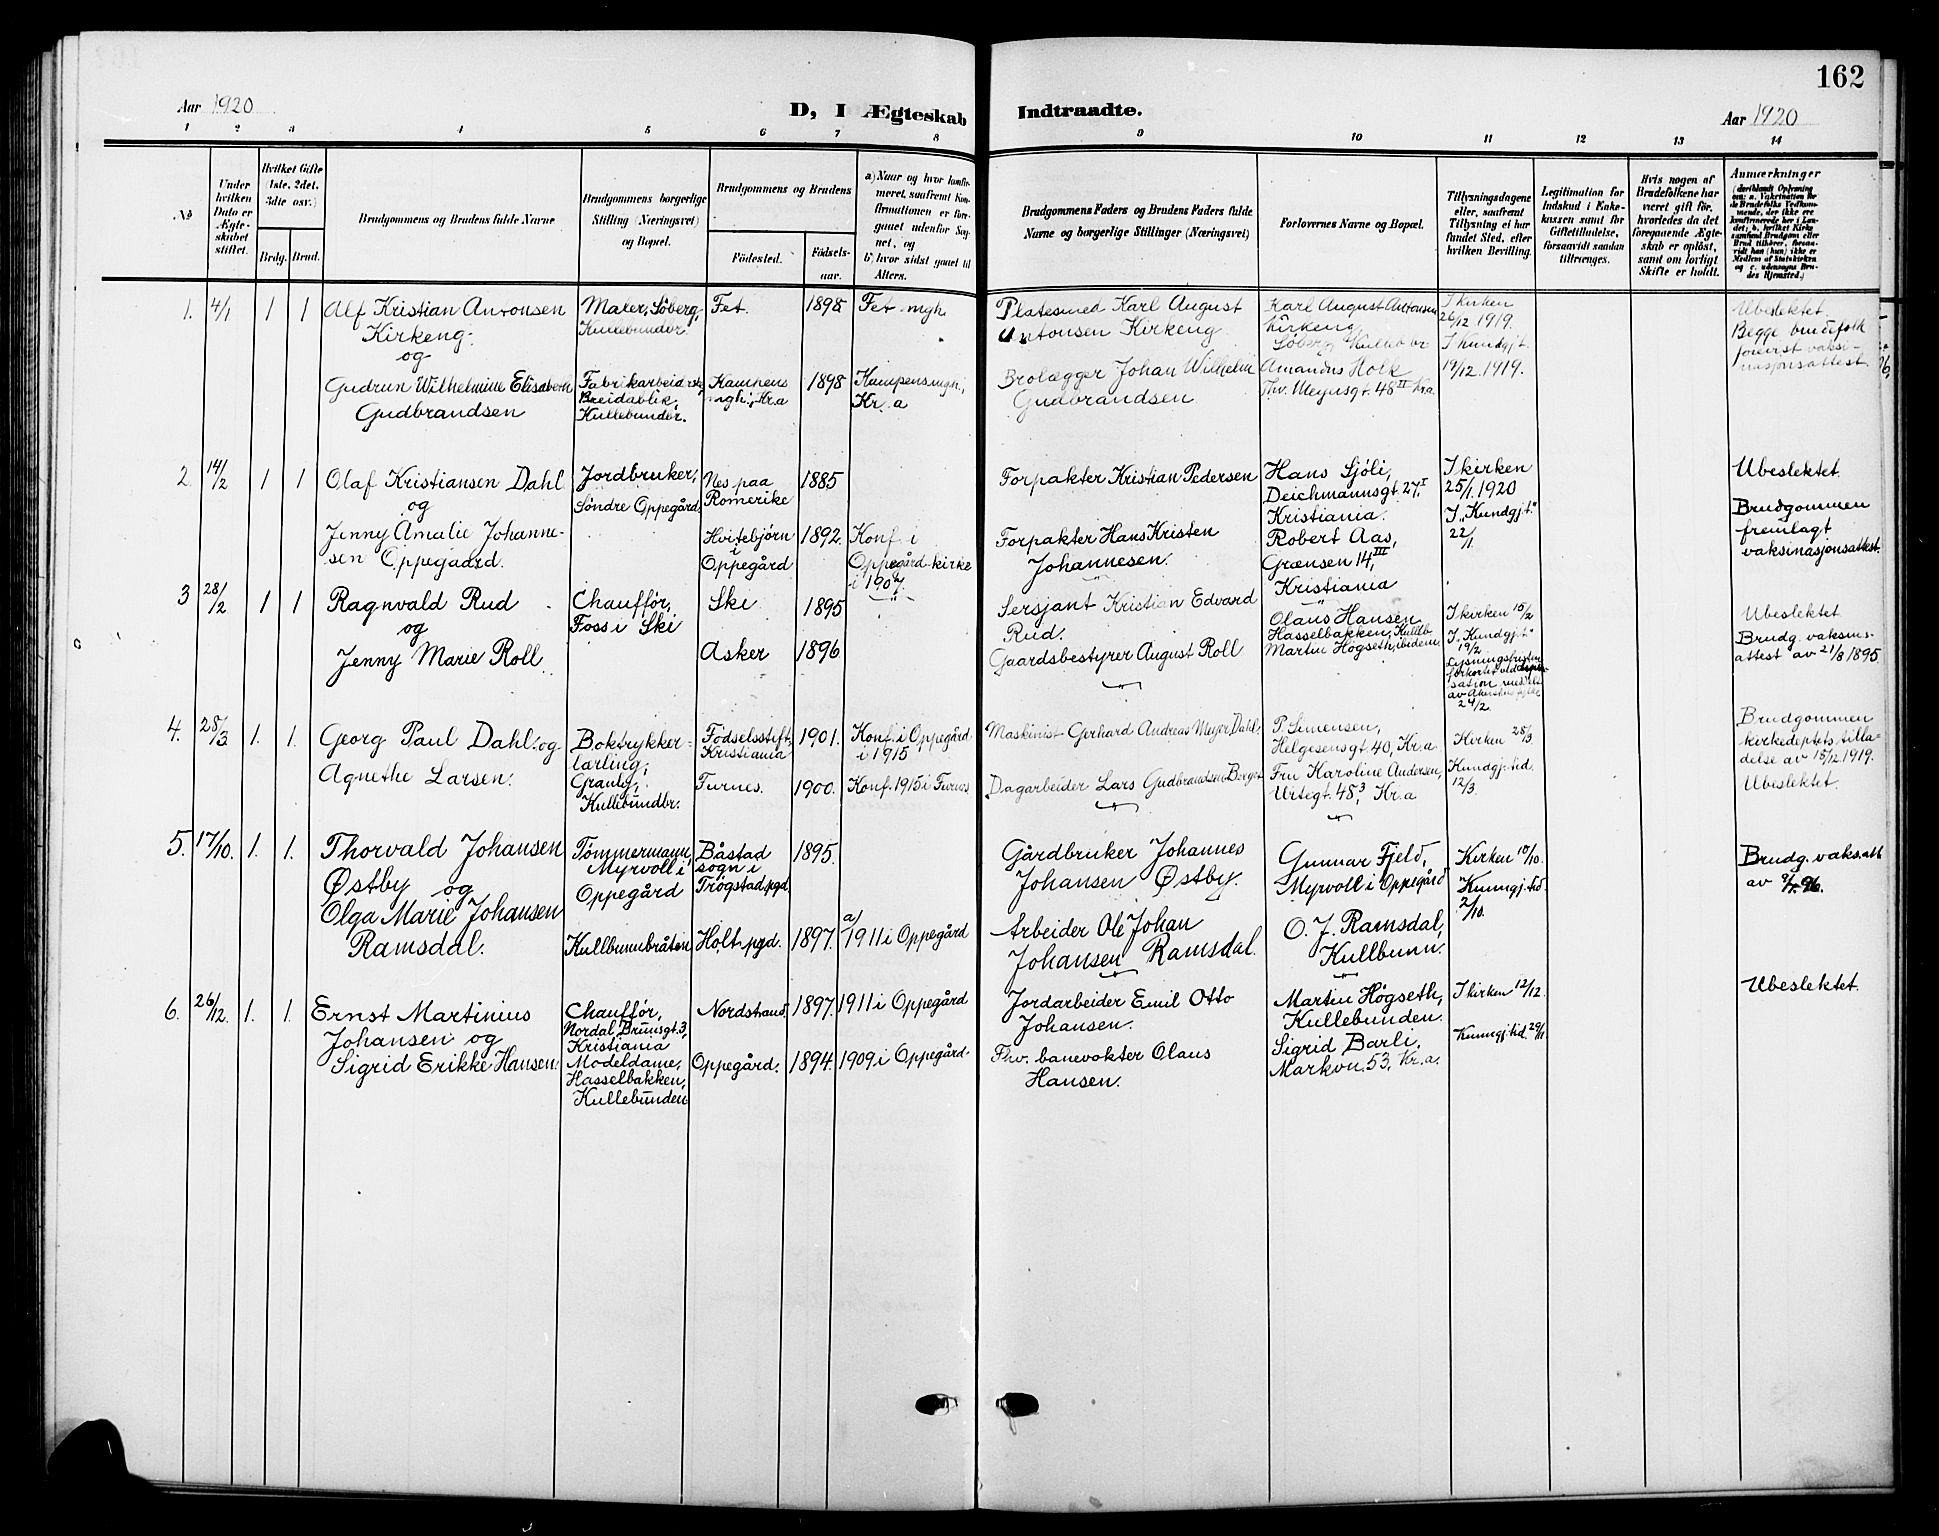 162
Aar 1920
D, I Ægteskab Indtraadte.
Aar 1920
1 2 3 4 5 6 7 8 9 10 11 12 13 14
No
Under hvilken Dato er Ægteskabet stiftet.
Hvilket Gifte 1ste, 2det, 3die osv.)
Brdg. Brud.
Brudgommens og Brudens fulde Navne
Brudgommens borgerlige Stilling (Næringsvei) og Bopæl.
Brudgommens og Brudens
Födested.
Födselsaar.
a) Naar og hvor konfirmeret, saafremt Konfirmationen er foregaaet udenfor Sognet, og
b) hvor sidst gaaet til Alters.
Brudgommens Faders og Brudens Faders fulde Navne og borgerlige Stillinger (Næringsvei)
Forlovernes Navne og Bopæl.
Tillysningsdagene eller, saafremt Tillysning ei har fundet Sted, efter hvilken Bevilling.
Legitimation for Indskud i Enkekassen samt for Giftetilladelse, forsaavidt saadan tiltrænges.
Hvis nogen af Brudefolkene har været gift för, hvorledes da det foregaaende Ægteskab er oplöst, samt om lovligt Skifte er holdt.
Anmærkninger
(deriblandt Oplysning om: a. Vakcination for de Brudefolks Vedkommende, der ikke ere konfirmerede her i Landet; b. hvilket Kirkesamfund Brudgom eller Brud tilhörer, forsaavidt han (hun) ikke er Medlem af Statskirken og c. udensogns Brudes Hjemsted.)
1. 4/1 1 1
Alf Kristian Antonsen
Kirkeng
og
Gudrun Wilhelmine Elisabeth
Gudbrandsen
Maler, Söberg,
Kullebunder
Fabrikarbeiderske
Breidablik,
Kullebunder.
Fet.
Kampens
mgh., Kr.a
1898
1898
Fet mgh.
Kampens mgh.,
Kr. a
Platesmed Karl August
Antonsen Kirkeng
Brolægger Johan Wilhelm
Gudbrandsen
Karl August Antonsen
Kirkeng
Söberg Kulleb br
Amandus Holk
Thv. Meyersgt. 48 II Kr.a
I kirken
26/12 1919.
I Kundgj.t.
19/12. 1919.
Ubeslektet.
Begge brudefolk
forevist vaksi-
nasjonsattest.
2. 14/2 1 1
Olaf Kristiansen Dahl
og
Jenny Amalie Johanne-
sen Oppegaard.
Jordbruker,
Søndre Oppegård
Nes paa
Romerike
Hvitebjörn
i
Oppegård
1885
1892.
Konf. i
Oppegård kirke
i 1907.
Forpakter Kristian Pedersen
Forpakter Hans Kristen
Johannesen.
Hans Sjöli,
Deichmannsgt. 27, I
Kristiania.
Robert Aas,
Grænsen 14, III
Kristiania
I kirken
25/1. 1920
I „Kundgj.t."
22/1.
Ubeslektet.
Brudgommen
fremlagt
vaksinasjonsattest.
3 28/2 1 1
Ragnvald Rud
og
Jenny Marie Roll
Chauffór,
Foss i Ski
Ski
Asker
1895
1896
Sersjant Kristian Edvard
Rud.
Gaardsbestyrer August Roll
Olaus Hansen
Hasselbakken, Kullb.
Martin Högseth, ibidem
I kirken 15/2
I „Kundgj.t."
19/2
Lysningsfristen
forkortet ved dispen-
sation meddelt
24/2.
Ubeslektet
Brudg. vaksins-
attest av 21/8 1895
4. 28/3 1. 1.
Georg Paul Dahl. og
Agnethe Larsen.
Boktrykker-
lærling,
Granly,
Kullebundbr.
Födselsstift.
Kristiania
Furnes.
1901.
1900.
Konf. i Oppegård
i 1915
Konf. 1915 i Furnes
Maskinist Gerhard Andreas Meyer Dahl.
Dagarbeider Lars Gudbrandsen Berger
P. Simensen,
Helgesensgt 40, Kr.a
Fru Karoline Andersen,
Urtegt. 48, 3 Kr.a
Kirken 28/3.
Kundgj.tid.
12/3.
Brudgommen
kirkedeptets tilla-
delse av 15/12 1919.
Ubeslektet.
5. 17/10. 1. 1.
Thorvald Johansen
Østby og
Olga Marie Johansen
Ramsdal.
Tømmermann,
Myrvoll i
Oppegård
Kullbunnbråten
Båstad
sogn i
Trøgstad pgd
Holt pgd.
1895.
1897.
a/ 1911 i Oppegård
Gårdbruker Johannes
Johansen Østby.
Arbeider Ole Johan
Johansen Ramsdal.
Gunnar Fjeld,
Myrvoll i Oppegård
O. J. Ramsdal,
Kullbunn.
Kirken 10/10.
Kunngj.tid.
2/10.
Brudg. vaks.att
6. 26/12. 1. 1.
Ernst Martinius
Johansen og
Sigrid Erikke Hansen.
Chauffór,
Nordal Brunsgt. 3,
Kristiania
Modeldame,
Hasselbakken,
Kullebunden
Nordstrand
Oppegård.
1897.
1894.
1911 i Oppegård
1909 i Oppegård
Jordarbeider Emil Otto
Johansen.
Fhv. banevokter Olaus
Hansen.
Martin Högseth,
Kullebunden.
Sigrid Barli,
Markvn. 53, Kr.a.
I kirken 12/12.
Kunngj.tid. 29/11
Ubeslektet.